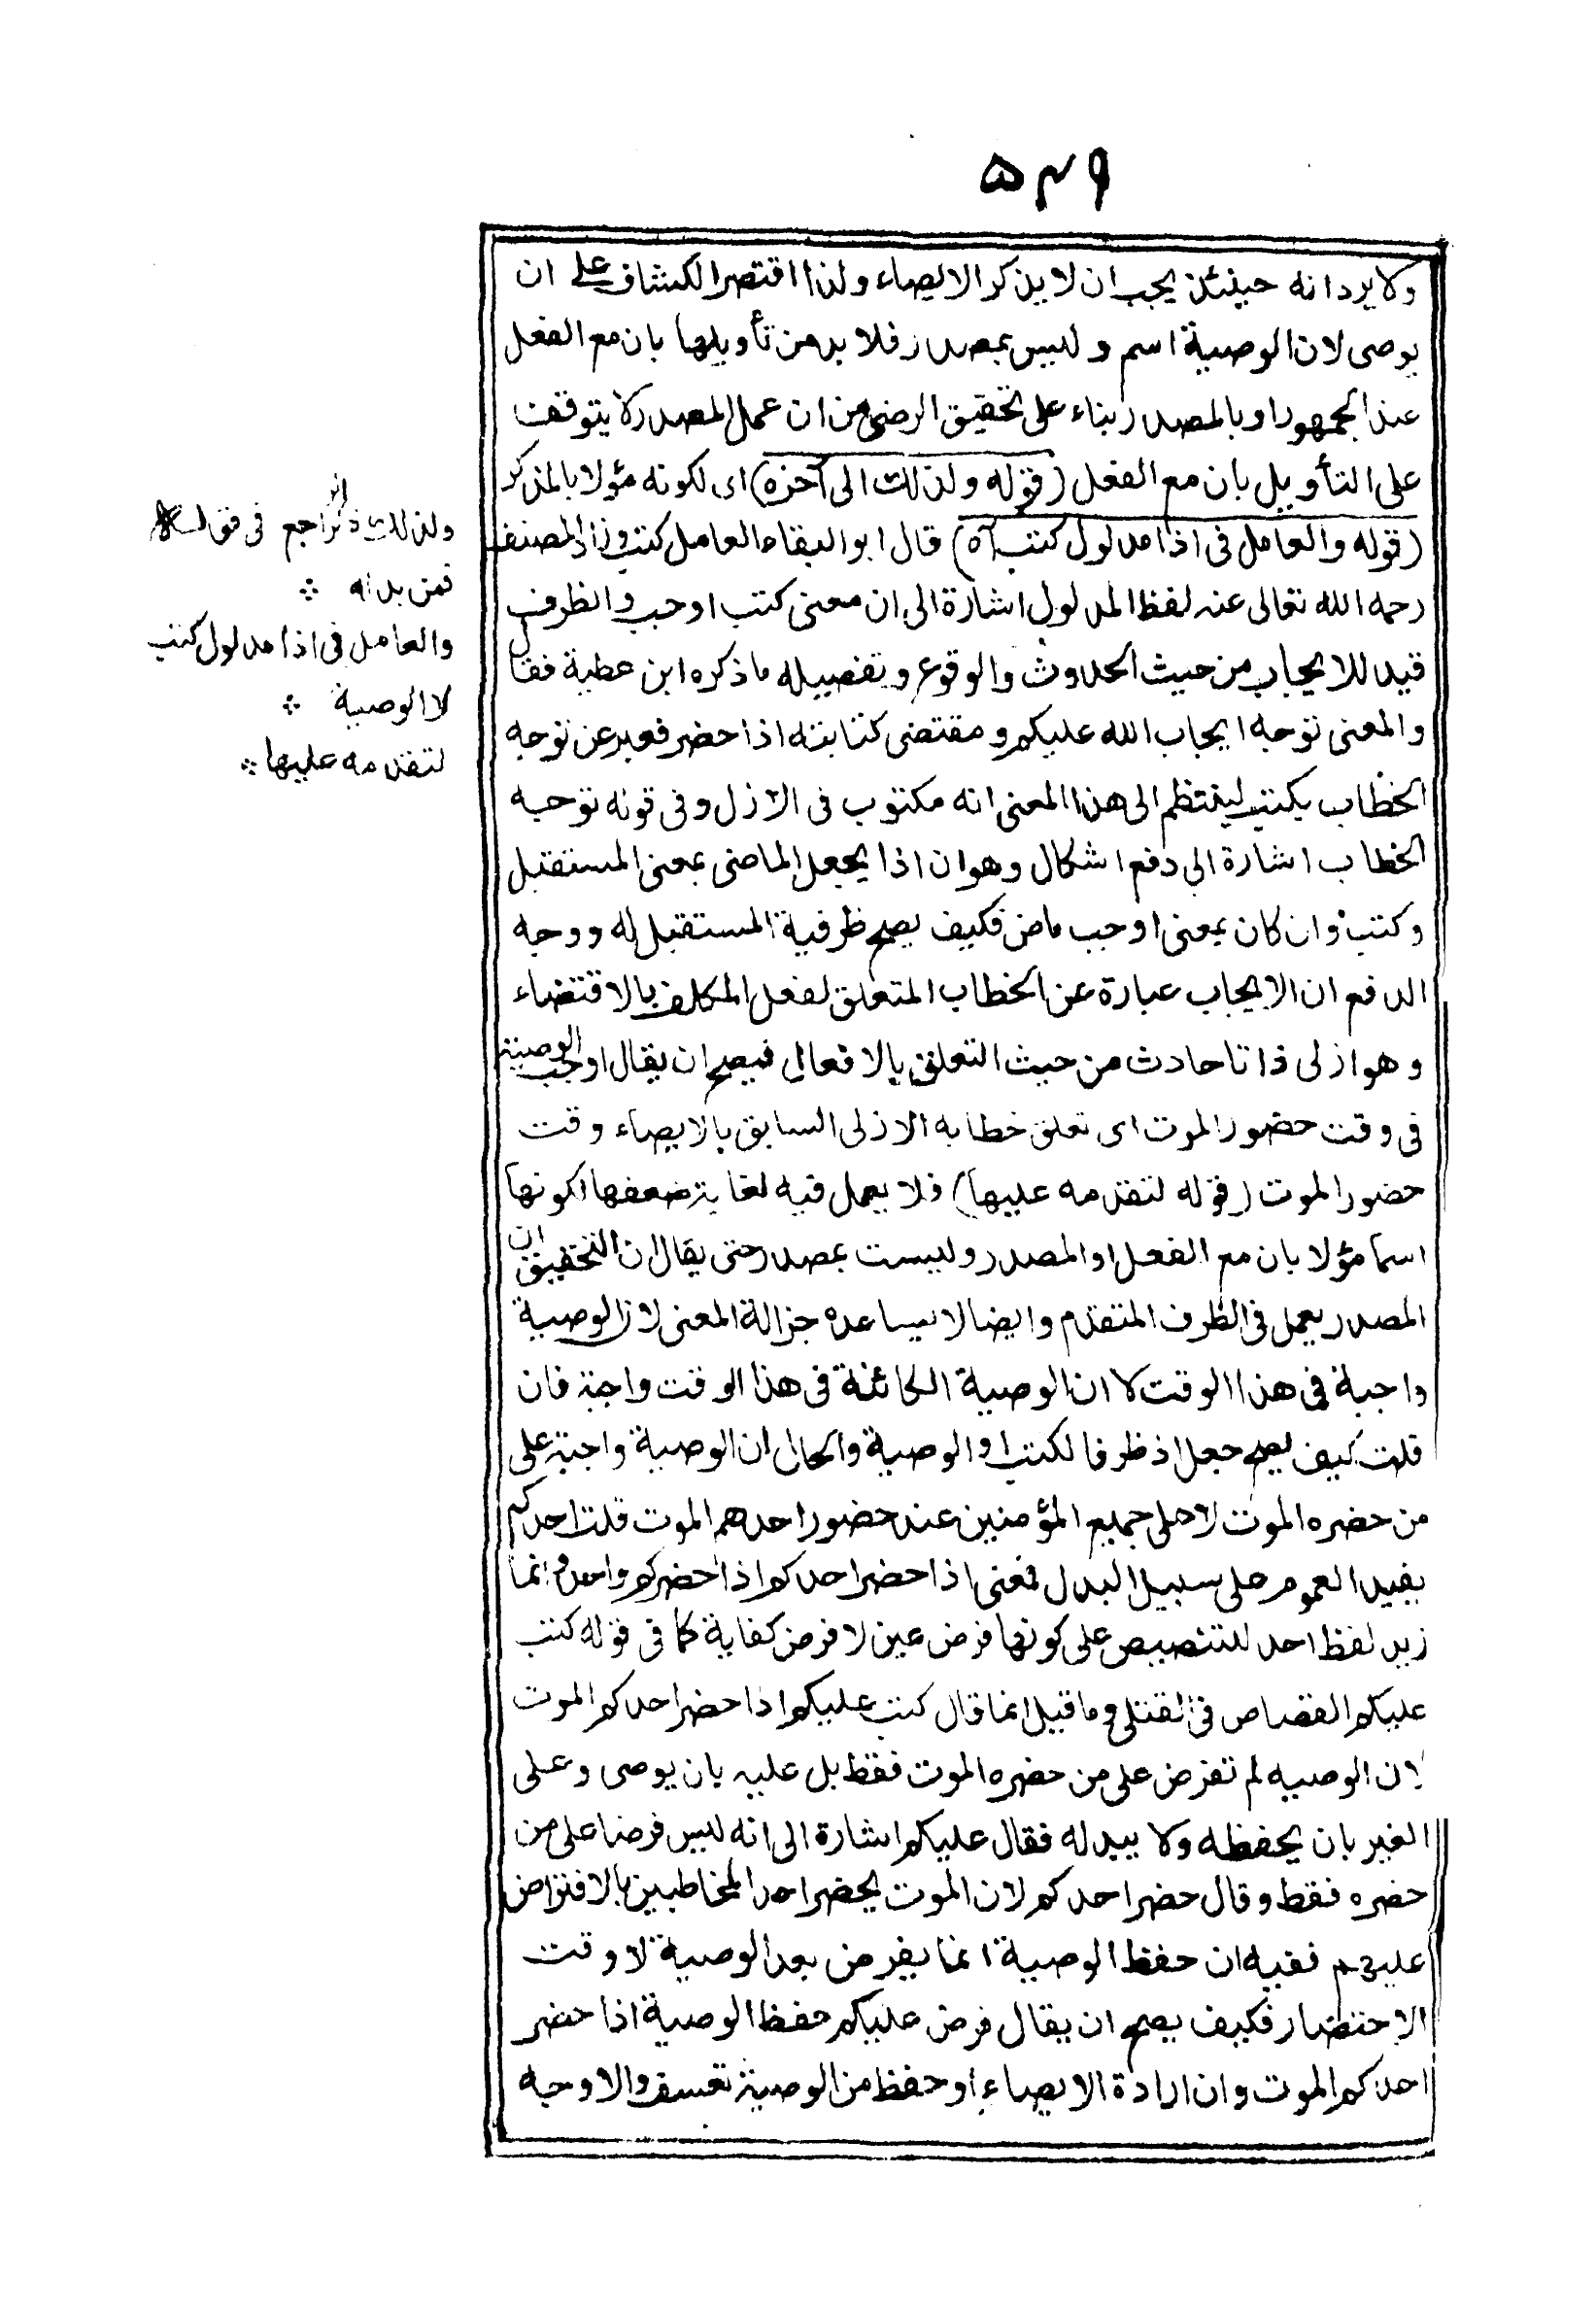 ٥٣٩
ولا يرد انه حينئذ يجب ان لا يذكر الايصاء ولذا اقتصر الكشاف على ان
يوصى لان الوصية اسم وليس بمصدر فلا بد من تأويلها بان مع الفعل
عند الجمهور او بالمصدر بناء على تحقيق الرضى من ان عمل المصدر لا يتوقف
على التأويل بان مع الفعل (قوله ولذلك الى آخره) اى لكونه مؤلا بالمذكر
(قوله والعامل فى اذا مدلول كتب آه) قال ابو البقاء العامل كتب وزاد المصنف
رحمه الله تعالى عنه لفظ المدلول اشارة الى ان معنى كتب اوجب والظرف
قيد للايجاب من حيث الحدوث والوقوع وتفصيله ما ذكره ابن عطية فقال
والمعنى توجه ايجاب الله عليكم ومقتضى كتابته اذا حضر فعبر عن توجه
الخطاب بكتب لينتظم الى هذا المعنى انه مكتوب فى الازل وفى قوله توجه
الخطاب اشارة الى دفع اشكال وهو ان اذا يجعل الماضى بمعنى المستقبل
وكتب وان كان بمعنى اوجب ماض فكيف يصح ظرفية المستقبل له ووجه
الدفع ان الايجاب عبارة عن الخطاب المتعلق لفعل المكلف بالاقتضاء
وهو ازلى ذاتا حادث من حيث التعلق بالافعال فيصح ان يقال اوجب الوصية
فى وقت حضور الموت اى تعلق خطابه الازلى السابق بالايصاء وقت
حضور الموت (قوله لتقدمه عليها) فلا يعمل فيه لغاية ضعفها لكونها
اسما مؤلا بان مع الفعل او المصدر وليست بمصدر حتى يقال ان التحقيق ان
المصدر يعمل فى الظرف المتقدم وايضا لا يساعده جزالة المعنى لان الوصية
واجبة فى هذا الوقت لا ان الوصية الكائنة فى هذا الوقت واجبة فان
قلت كيف يصح جعل اذ ظرفا لكتب او الوصية والحال ان الوصية واجبة على
من حضره الموت لا على جميع المؤمنين عند حضور احدهم الموت قلت احدكم
يفيد العموم على سبيل البدل فمعنى اذا حضر احدكم اذا حضركم واحد وانما
زيد لفظ احد للتنصيص على كونها فرض عين لا فرض كفاية كما فى قوله كتب
عليكم القصاص فى القتلى وما قيل انما قال كتب عليكم اذا حضر احدكم الموت
لان الوصيه لم تفرض على من حضره الموت فقط بل عليه بان يوصى وعلى
الغير بان يحفظه ولا يبدله فقال عليكم اشارة الى انه ليس فرضا على من
حضره فقط وقال حضر احدكم لان الموت يحضر احد المخاطبين بالافتراض
عليهم ففيه ان حفظ الوصية انما يفرض بعد الوصية لا وقت
الاحتضار فكيف يصح ان يقال فرض عليكم حفظ الوصية اذا حضر
احدكم الموت وان ارادة الايصاء او حفظ من الوصية تعسف والاوجه
ولذلك ذكر الراجع فى قوله
فمن بدله
والعامل فى اذا مدلول كتب
لا الوصية
لتقدمه عليها